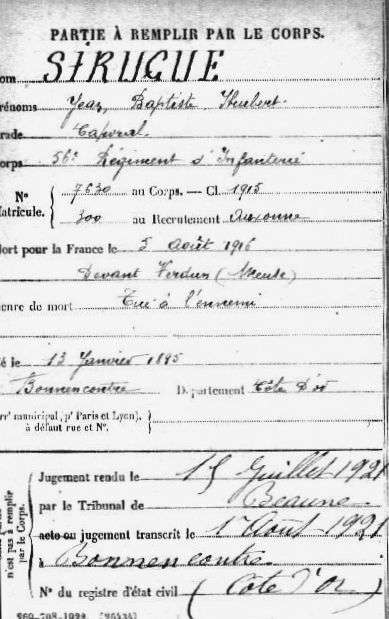 PARTIE À REMPLIR PAR LE CORPS.
om STRUGUE
rénoms Jean, Baptiste Hubert
rade Caporal
orps 56e Régiment d'Infanterie
N° 7630 au Corps. — Cl. 1915
atricule. 300 au Recrutement Auxonne
ort pour la France le 5 Août 1916
Devant Verdun (Meuse)
enre de mort Tué à l'ennemi
é le 13 Janvier 1895
Bonnencontre Département Côte d'Or
rr' municipal, p' Paris et Lyon),
à défaut rue et N°.
Jugement rendu le 15 Juillet 1921
par le Tribunal de Beaune
acte ou jugement transcrit le 1er Août 1921
à Bonnencontre
N° du registre d'état civil (Côte d'Or)
n'est pas à remplir
par le Corps.